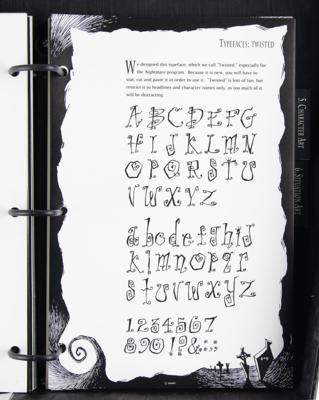 TYPEFACES: TWISTED
We designed this typeface, which we call "Twisted," especially for
the Nightmare program. Because it is new, you will have to
stat, cut and paste it in order to use it. "Twisted" is lots of fun, but
restrict it to headlines and character names only, as too much of it
will be distracting.
A B C D E F G
H I J K L M N
O P Q R S T U
V W X Y Z
a b c d e f g h i j
k l m n o p q r
s t u v w x y z
1 2 3 4 5 6 7
8 9 0 ! ? & : ;
5 CHARACTER ART
6 SITUATION ART